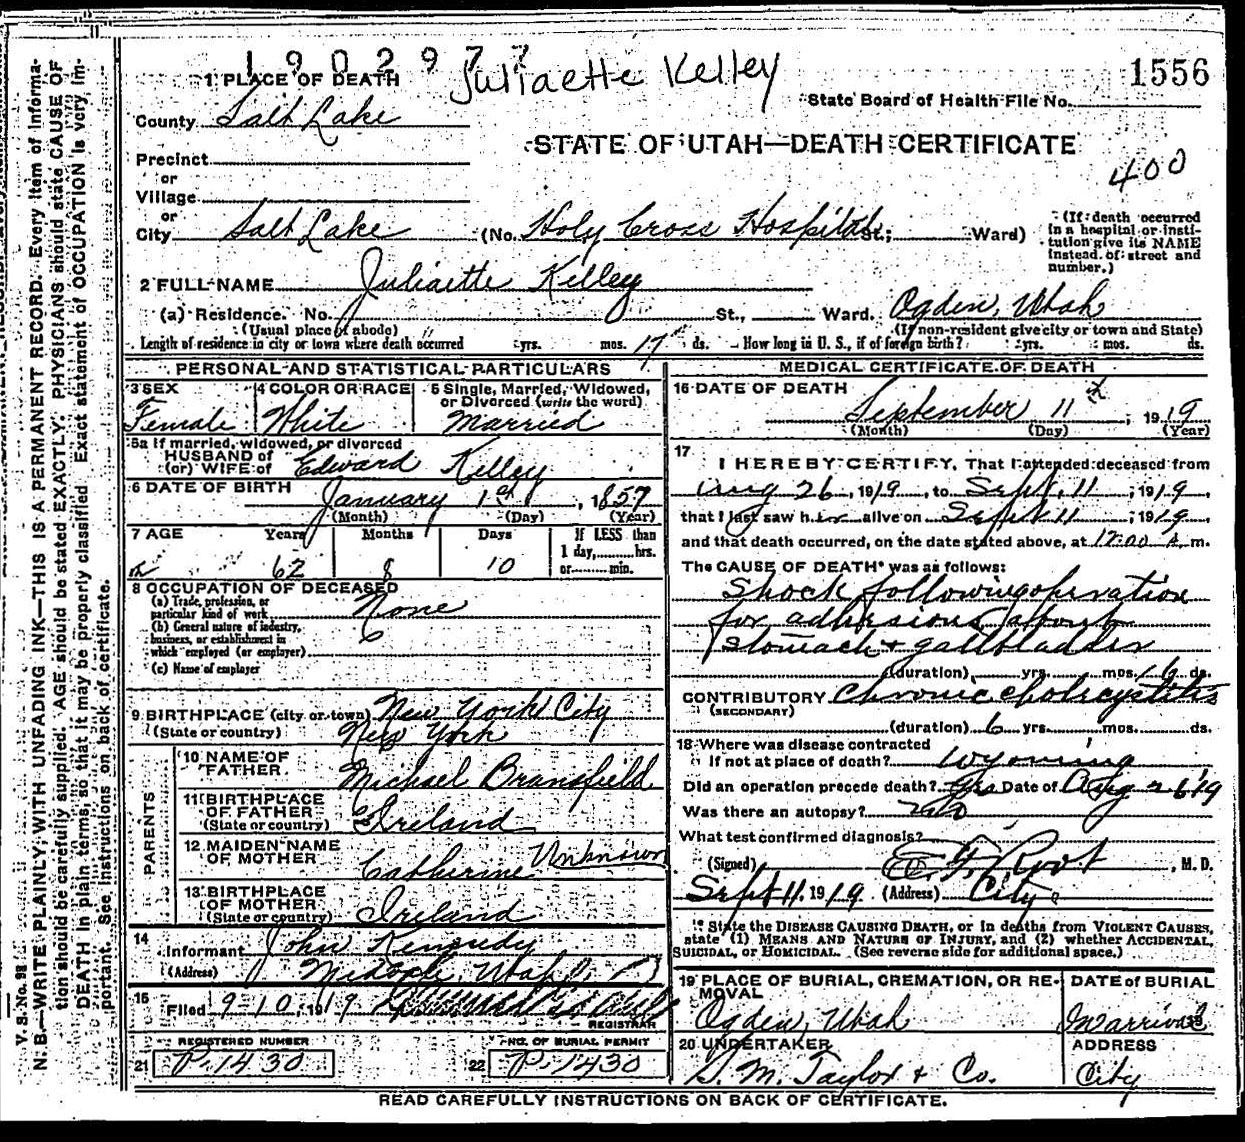 1902977
Juliaette Kelley
1556
1 PLACE OF DEATH
State Board of Health File No.
County Salt Lake
STATE OF UTAH—DEATH CERTIFICATE
Precinct
400
or
Village
or
City Salt Lake (No. Holy Cross Hospital St.; Ward)
(If death occurred in a hospital or insti-
tution give its NAME
instead of street and
number.)
2 FULL NAME Juliaette Kelley
(a) Residence. No. St., Ward. Ogden, Utah
(Usual place of abode) (If non-resident give city or town and State)
Length of residence in city or town where death occurred yrs. mos. 17 ds. How long in U. S., if of foreign birth? yrs. mos. ds.
PERSONAL AND STATISTICAL PARTICULARS
3 SEX 4 COLOR OR RACE 5 Single, Married, Widowed,
or Divorced (write the word)
Female White Married
5a If married, widowed, or divorced
HUSBAND of
(or) WIFE of Edward Kelley
6 DATE OF BIRTH January 1st, 1857
(Month) (Day) (Year)
7 AGE Years Months Days If LESS than
1 day, hrs.
or min.
62 8 10
8 OCCUPATION OF DECEASED
(a) Trade, profession, or
particular kind of work None
(b) General nature of industry,
business, or establishment in
which employed (or employer)
(c) Name of employer
9 BIRTHPLACE (city or town) New York City
(State or country) New York
PARENTS
10 NAME OF
FATHER Michael Bransfield
11 BIRTHPLACE
OF FATHER
(State or country) Ireland
12 MAIDEN NAME
OF MOTHER Catherine Unknown
13 BIRTHPLACE
OF MOTHER
(State or country) Ireland
14 Informant John Kennedy
(Address) Utah
15 Filed 9-10, 1919
REGISTRAR
REGISTERED NUMBER
21 P-1430
NO. OF BURIAL PERMIT
22 P-1430
MEDICAL CERTIFICATE OF DEATH
16 DATE OF DEATH
September 11, 1919
(Month) (Day) (Year)
17
I HEREBY CERTIFY, That I attended deceased from
Aug 26, 1919, to Sept. 11, 1919,
that I last saw her alive on Sept 11, 1919,
and that death occurred, on the date stated above, at 12:00 A. m.
The CAUSE OF DEATH* was as follows:
Shock following operation
for adhesions about
stomach + gallbladder
(duration) yrs. mos. 16 ds.
CONTRIBUTORY Chronic cholecystitis
(SECONDARY)
(duration) 6 yrs. mos. ds.
18 Where was disease contracted
If not at place of death? Wyoming
Did an operation precede death? Yes Date of Aug 26 '19
Was there an autopsy? No
What test confirmed diagnosis?
(Signed) Root, M. D.
Sept 11, 1919 (Address) City
* State the DISEASE CAUSING DEATH, or in deaths from VIOLENT CAUSES,
state (1) MEANS AND NATURE OF INJURY, and (2) whether ACCIDENTAL,
SUICIDAL, or HOMICIDAL. (See reverse side for additional space.)
19 PLACE OF BURIAL, CREMATION, OR RE-
MOVAL
Ogden, Utah
DATE of BURIAL
20 UNDERTAKER
S. M. Taylor + Co.
ADDRESS
City
READ CAREFULLY INSTRUCTIONS ON BACK OF CERTIFICATE.
V. S. No. 98
N. B.—WRITE PLAINLY, WITH UNFADING INK—THIS IS A PERMANENT RECORD. Every item of Informa-
tion should be carefully supplied. AGE should be stated EXACTLY. PHYSICIANS should state CAUSE OF
DEATH in plain terms, so that it may be properly classified. Exact statement of OCCUPATION is very im-
portant. See instructions on back of certificate.